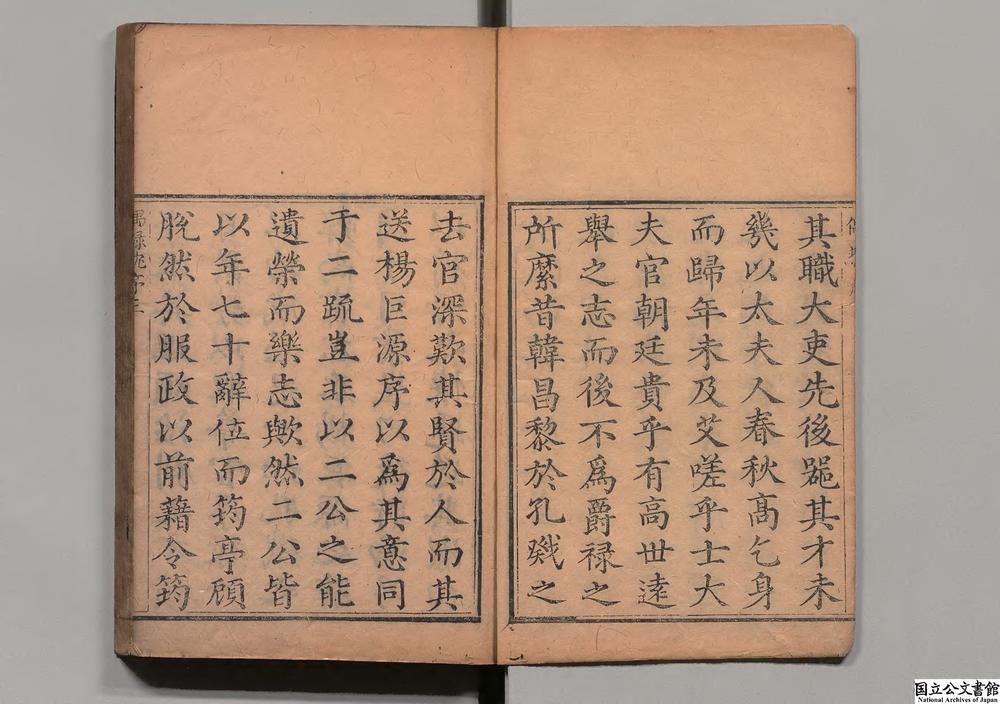 其職大吏先後噐其才未
幾以太夫人春秋髙乞身
而歸年未及艾嗟乎士大
夫官朝廷貴乎有高世逺
舉之志而後不爲爵禄之
所縻昔韓昌黎於孔戣之
去官深歎其賢於人而其
送楊巨源序以爲其意同
于二疏豈非以二公之能
遺榮而樂志歟然二公皆
以年七十辭位而筠亭顧
脫然於服政以前藉令筠
国立公文書館
National Archives of Japan